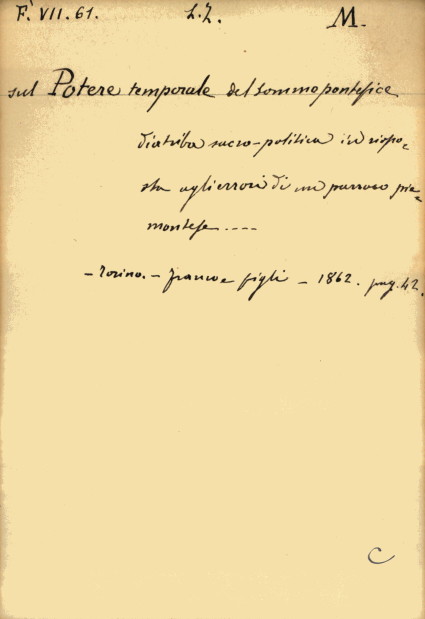 F. VII. 61. L. Z. M.
sul Potere temporale del sommo pontefice
diatriba sacro-politica in rispo=
sta agli errori di un parroco pie=
montese ....
– Torino. – Franco e figli – 1862. pag. 42.
C